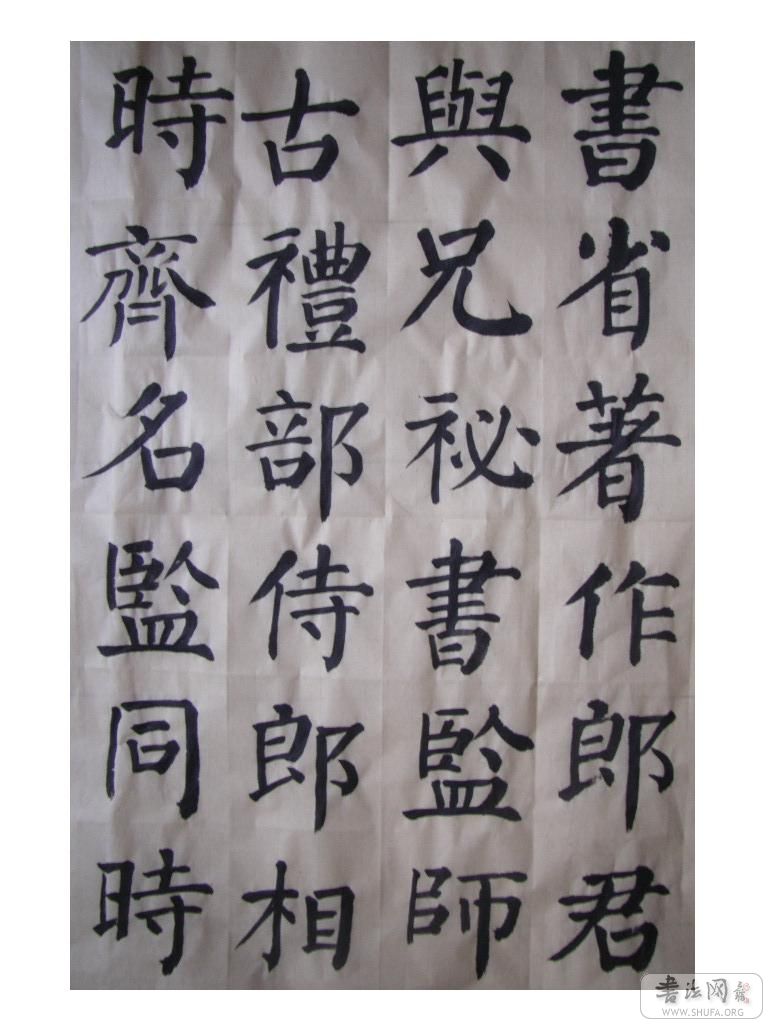 書省著作郎君
與兄祕書監師
古禮部侍郎相
時齊名監同時
書法网
WWW.SHUFA.ORG